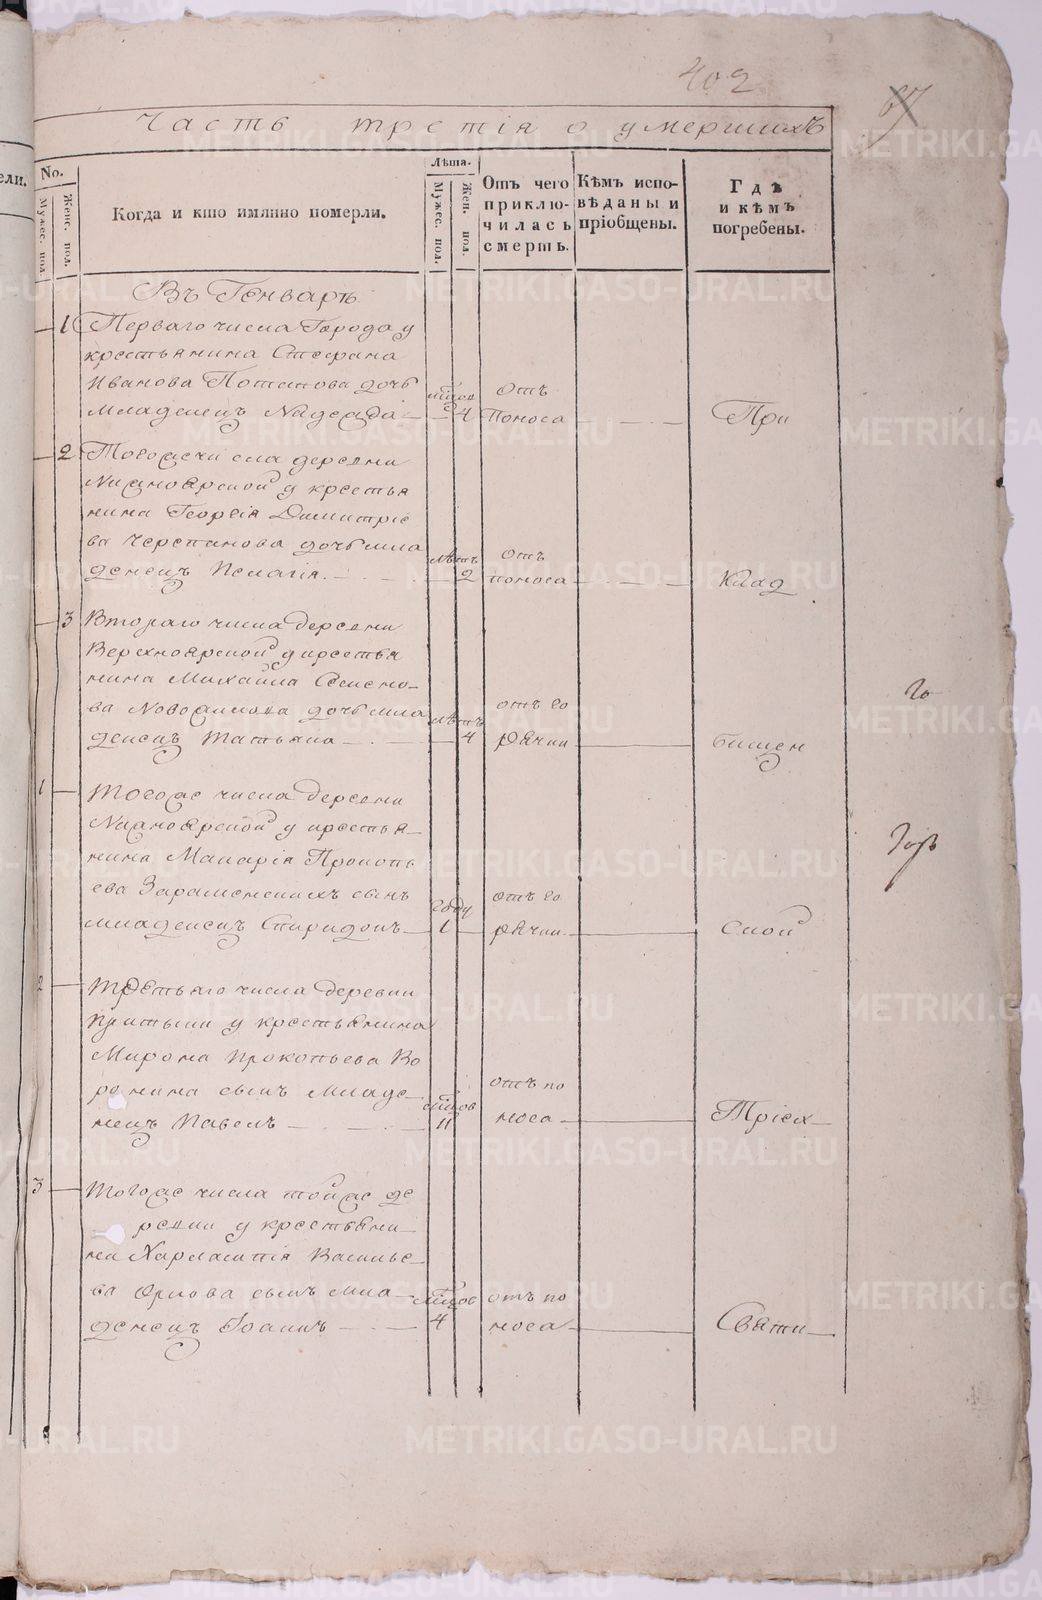 402
67
Часть третія о умершихъ
ели.
No.
Мужес. пол.
Женс. пол.
Когда и кто имянно померли.
Лѣта.
Мужес. пол.
Жен. пол.
Отъ чего
приклю-
чилась
смерть.
Кѣмъ испо-
вѣданы и
пріобщены.
Гдѣ
и кѣмъ
погребены.
Въ Генварѣ
1 Перваго числа Города у
крестьянина Стефана
Иванова Потапова дочь
младенецъ Надежда 4
отъ
поноса
При
2 Тогожъ числа деревни
Нижноярской у крестья
нина Георгія Димитріе
ва Черепанова дочь мла
денецъ Пелагія лѣтъ 2
отъ
поноса
Клад
3 Втораго числа деревни
Верхноярской у крестья
нина Михайла Семено-
ва дочь мла
денецъ Татьяна лѣтъ 4
отъ го
рячки
бищен
го
1 Тогожъ числа деревни
Нижноярской у крестья-
нина Макарія Прокопь
ева сынъ
младенецъ Спиридонъ году 1
отъ го
рячки
ской
2 Третьяго числа деревни
у крестьянина
Мирона Прокопьева Во
ронина сынъ Младе-
нецъ Павелъ 11
отъ по
носа
Трiех
3 Тогожъ числа тойже де
ревни у крестьяни-
на Харлампія Василье-
ва Орлова сынъ мла-
денецъ Іоаннъ 4
отъ по
носа
Святи
METRIKI.GASO-URAL.RU